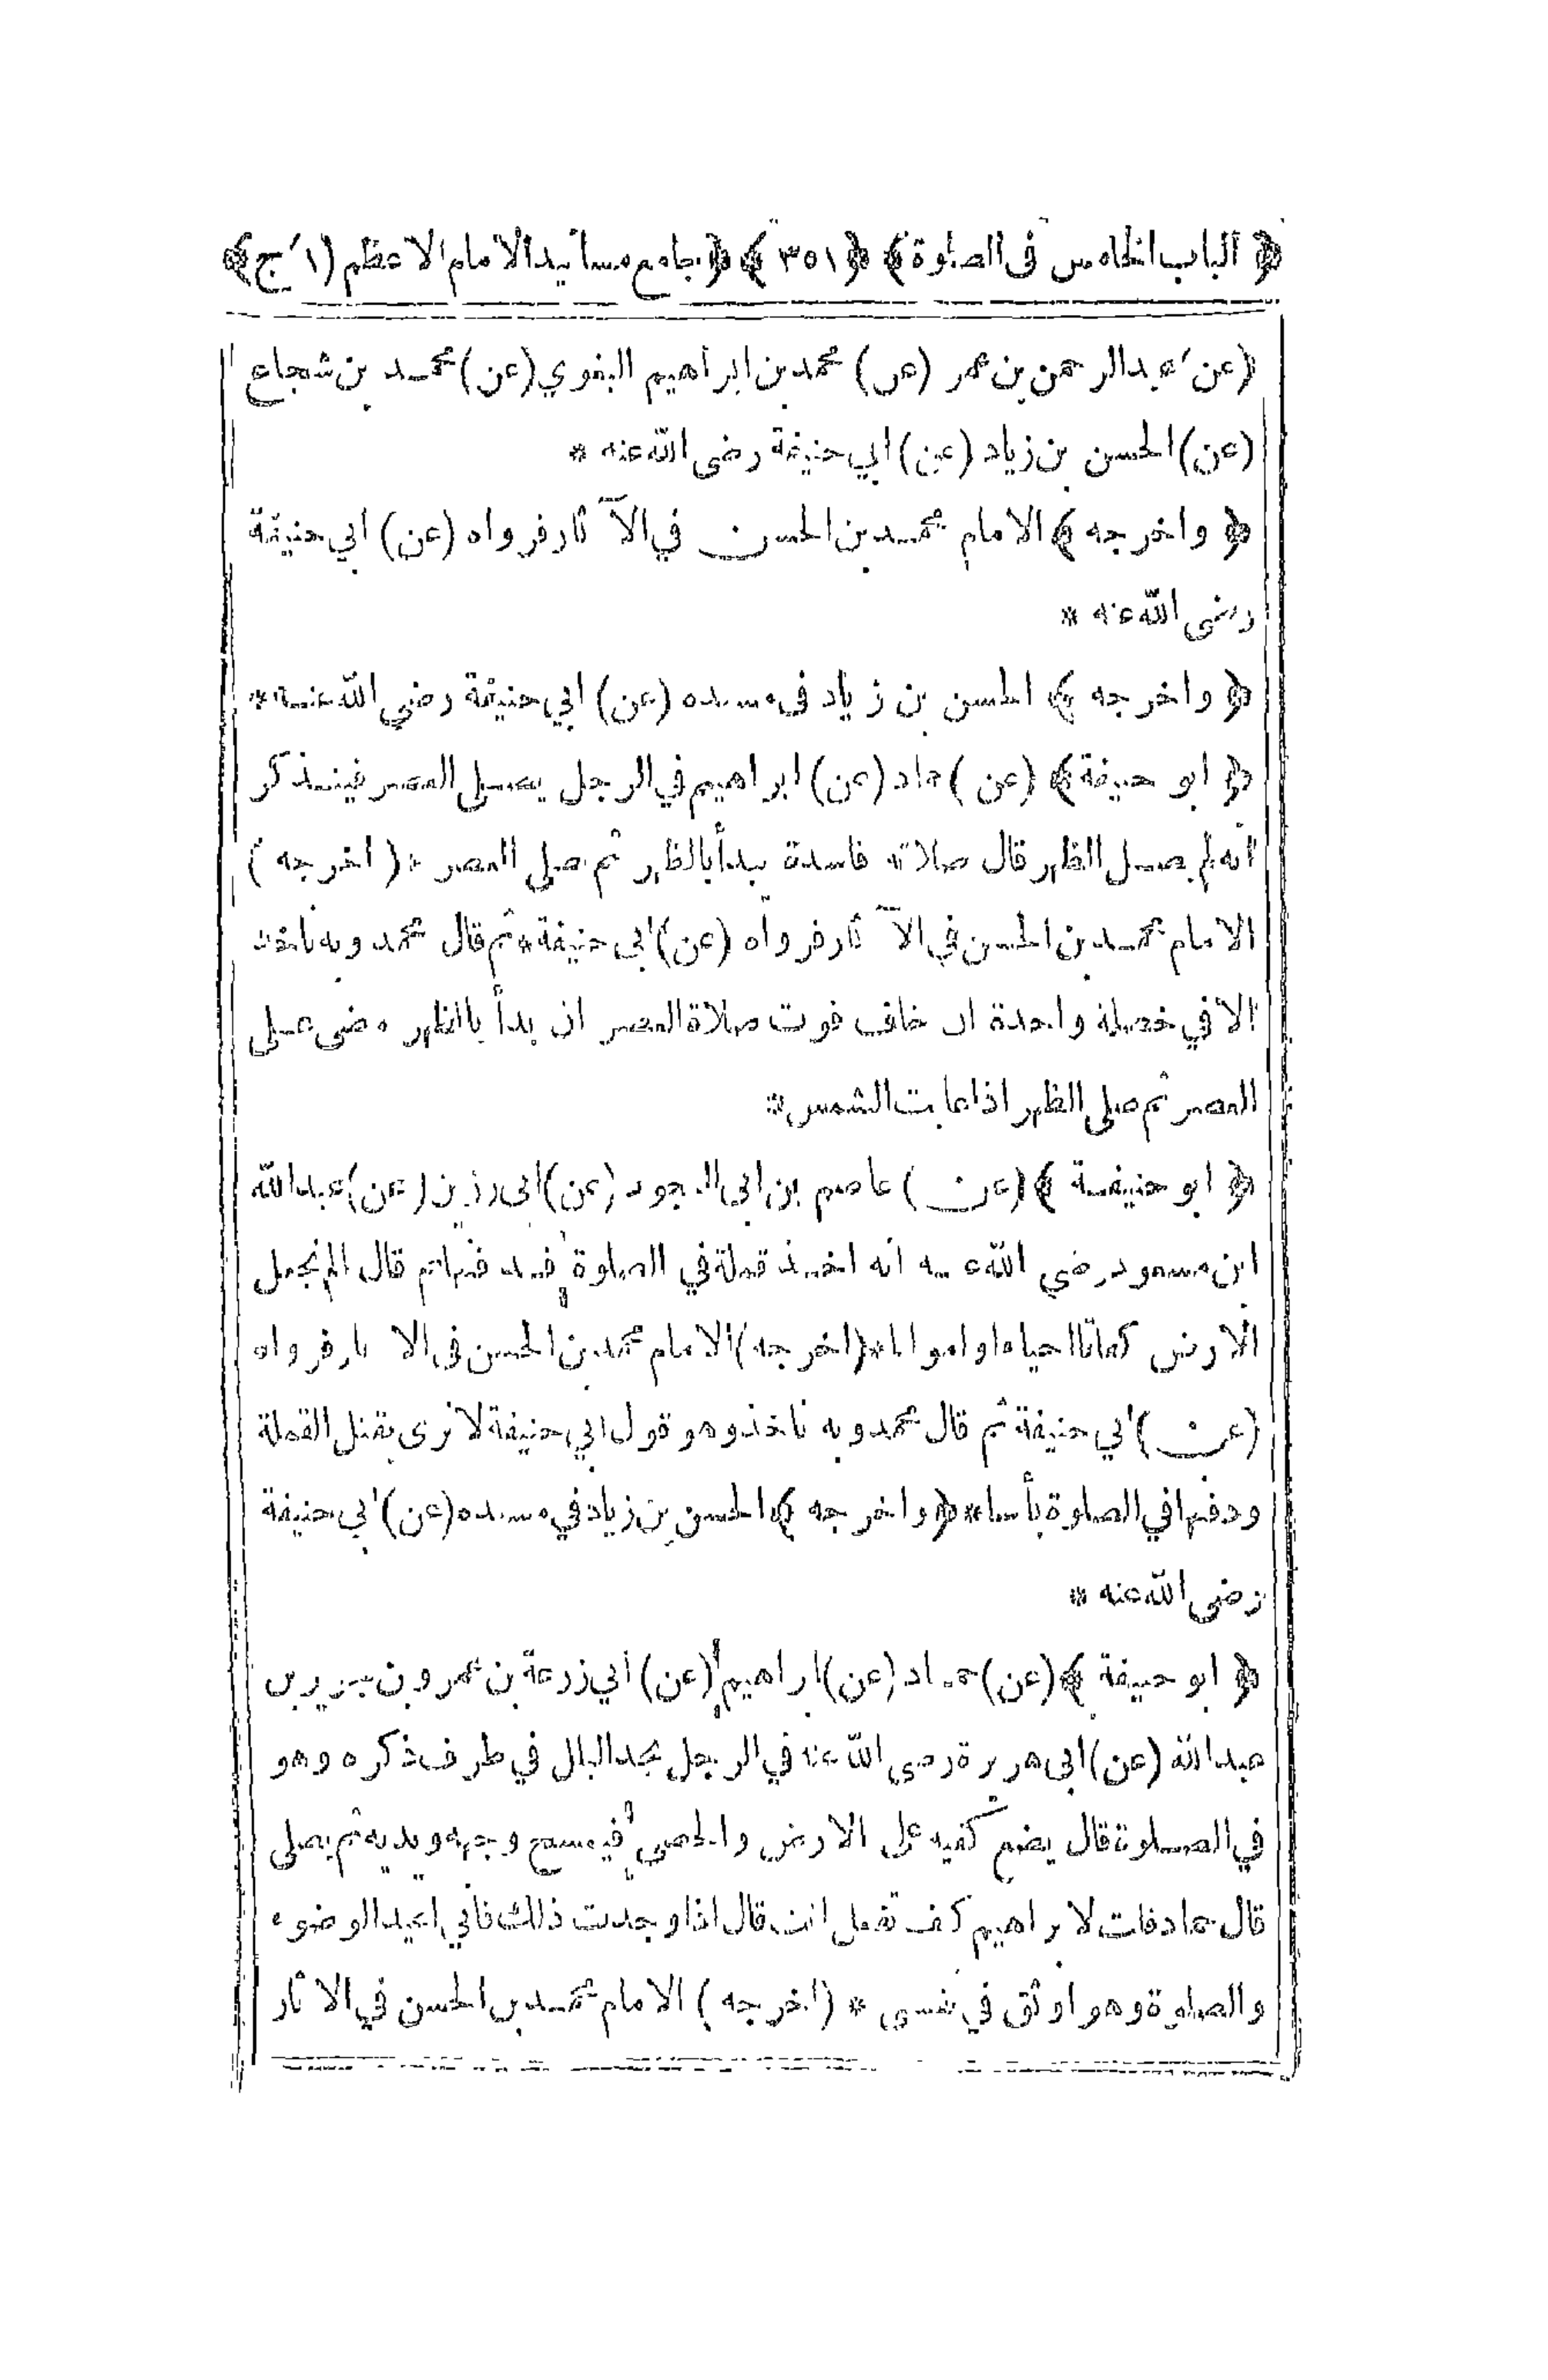 ﴿ الباب الخامس فى الصلوة ﴾ ﴿ ٣٥١ ﴾ ﴿ جامع مسانيد الامام الاعظم (١ ج) ﴾
(عن) عبد الرحمن بن عمر (عن) محمد بن ابراهيم البغوي (عن) محمد بن شجاع
(عن) الحسن بن زياد (عن) ابي حنيفة رضى الله عنه *
﴿ واخرجه ﴾ الامام محمد بن الحسن في الآثار فرواه (عن) ابي حنيفة
رضى الله عنه *
﴿ واخرجه ﴾ الحسن بن زياد فى مسنده (عن) ابي حنيفة رضي الله عنه *
﴿ ابو حنيفة ﴾ (عن) حماد (عن) ابراهيم في الرجل يصلى العصر فيتذكر
انه لم يصل الظهر قال صلاته فاسدة يبدأ بالظهر ثم يصلى العصر * (اخرجه)
الامام محمد بن الحسن في الآثار فرواه (عن) ابى حنيفة * ثم قال محمد وبه ناخذ
الا في خصلة واحدة ان خاف فوت صلاة العصر ان بدأ بالظهر مضى على
العصر ثم صلى الظهر اذا غابت الشمس *
﴿ ابو حنيفة ﴾ (عن) عاصم بن ابى النجود (عن) ابى رزين (عن) عبد الله
ابن مسعود رضى الله عنه انه اخذ قملة في الصلوة فدفنها ثم قال الم نجعل
الارض كفاتا احياء او امواتا * (اخرجه) الامام محمد بن الحسن فى الاثار فرواه
(عن) ابي حنيفة ثم قال محمد وبه ناخذ وهو قول ابي حنيفة لا نرى بقتل القملة
ودفنها في الصلوة بأسا * ﴿ واخرجه ﴾ الحسن بن زياد في مسنده (عن) ابي حنيفة
رضى الله عنه *
﴿ ابو حنيفة ﴾ (عن) حماد (عن) ابراهيم (عن) ابي زرعة بن عمرو بن جرير بن
عبد الله (عن) ابى هريرة رضي الله عنه في الرجل يجد البلل في طرف ذكره وهو
في الصلوة قال يضع كفيه على الارض والحصى فيمسح وجهه ويديه ثم يصلى
قال حماد فقلت لابراهيم كيف تفعل انت قال اذا وجدت ذلك فاني اعيد الوضوء
والصلوة وهو اوثق في نفسى * (اخرجه) الامام محمد بن الحسن في الاثار